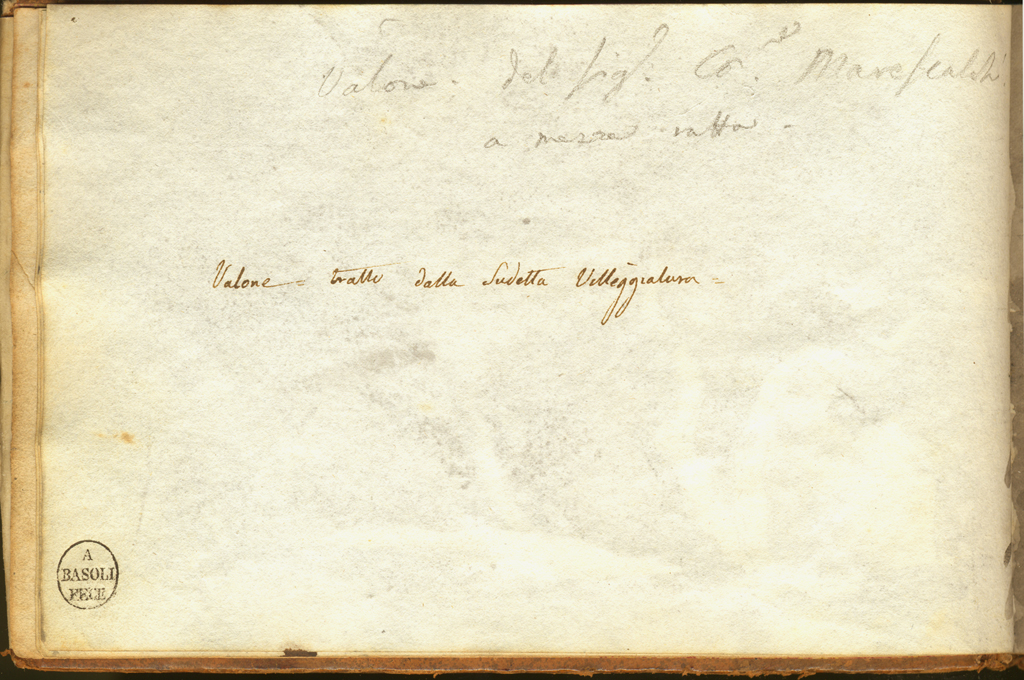 Valone. del sig.r Co.e Marescalchi
a mezza ratta.
Valone = tratto dalla Sudetta Villeggiatura =
A
BASOLI
FECE